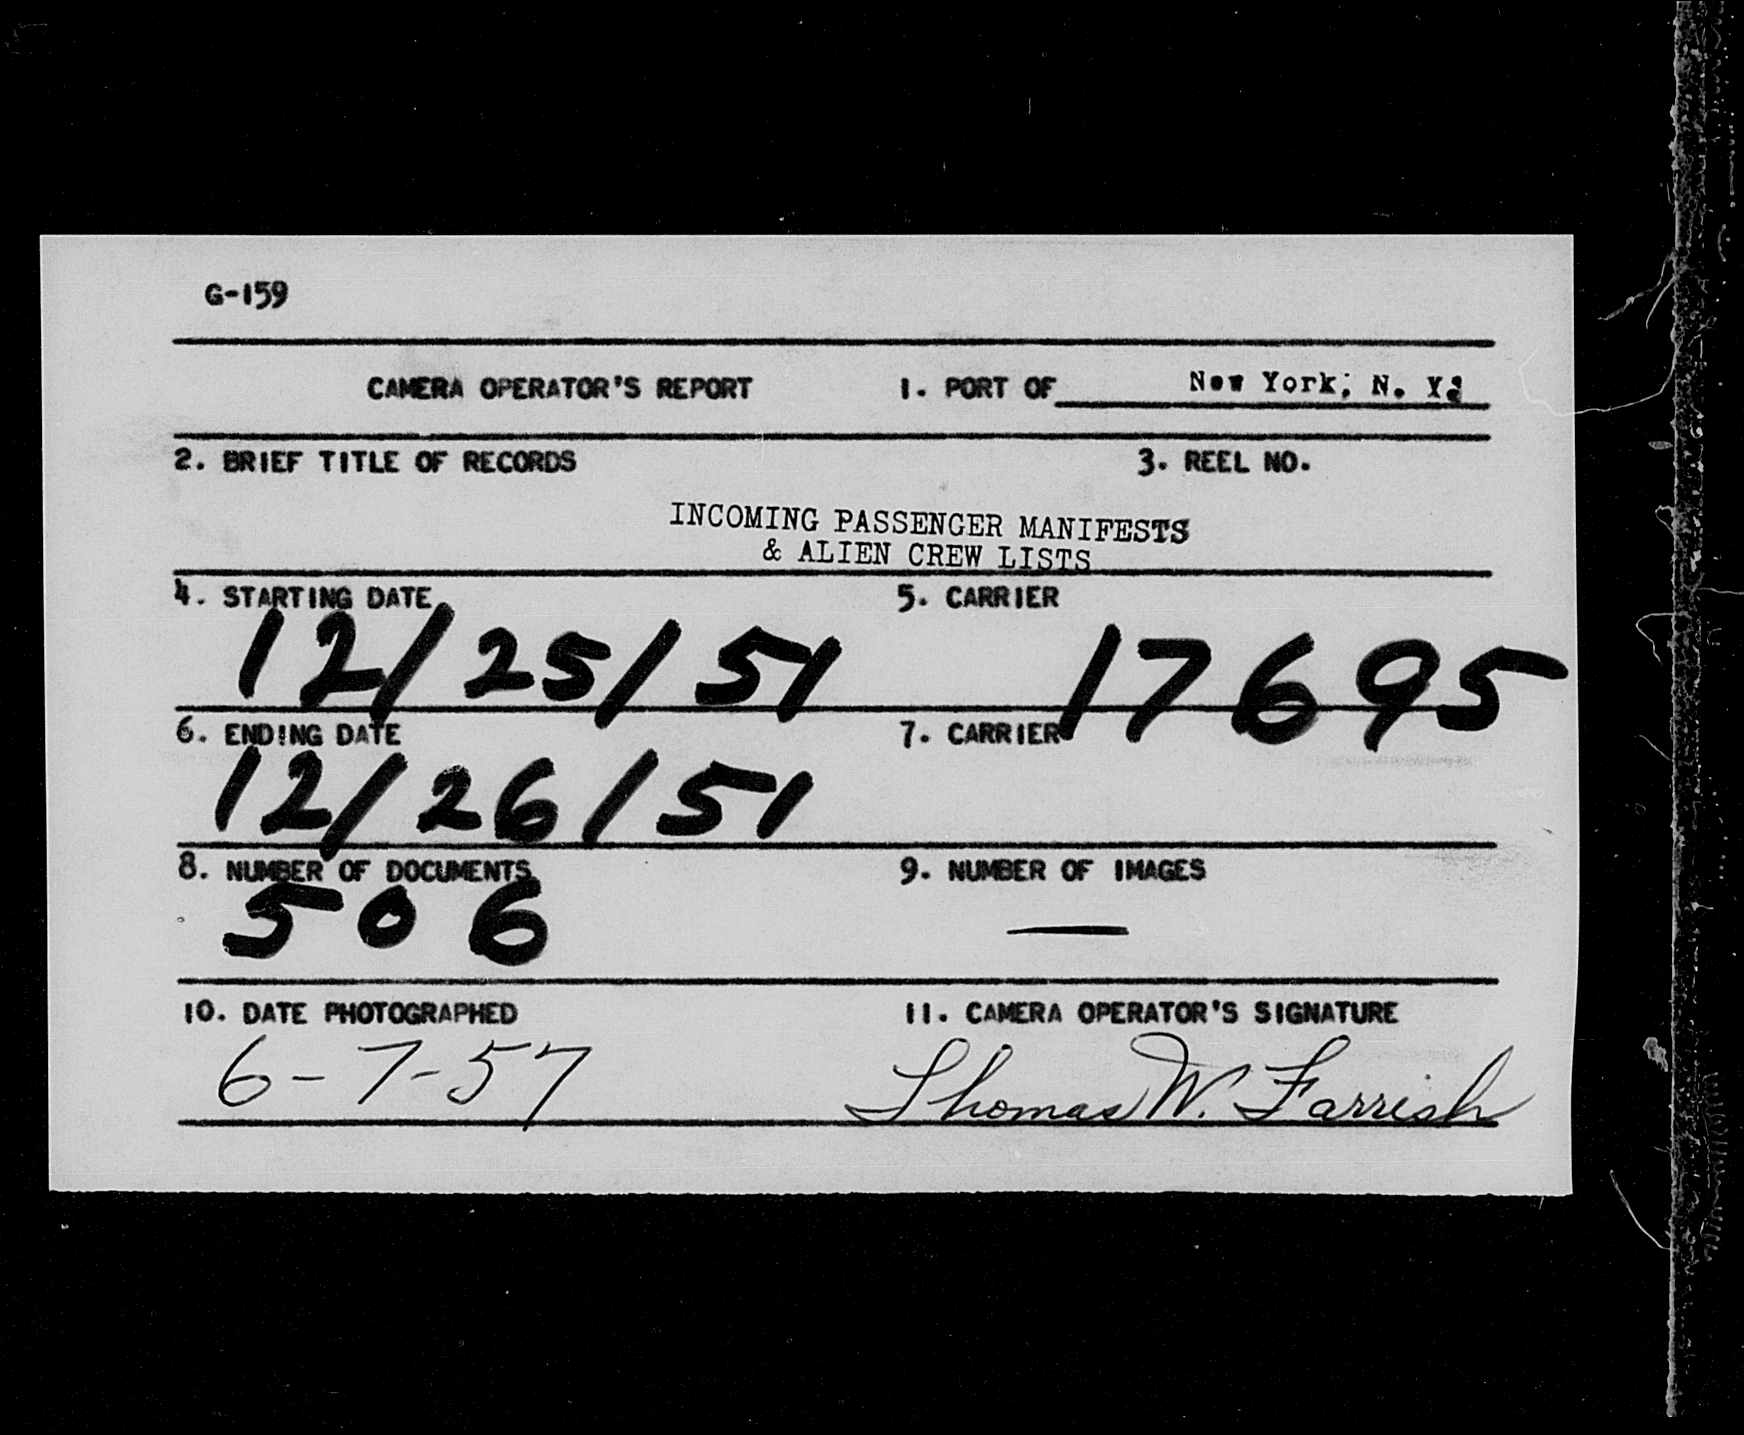 G-159
CAMERA OPERATOR'S REPORT 1. PORT OF New York, N. Y.
2. BRIEF TITLE OF RECORDS 3. REEL NO.
INCOMING PASSENGER MANIFESTS
& ALIEN CREW LISTS
4. STARTING DATE 5. CARRIER
12/25/51 17695
6. ENDING DATE 7. CARRIER
12/26/51
8. NUMBER OF DOCUMENTS 9. NUMBER OF IMAGES
506 —
10. DATE PHOTOGRAPHED 11. CAMERA OPERATOR'S SIGNATURE
6-7-57 Thomas W. Farrish